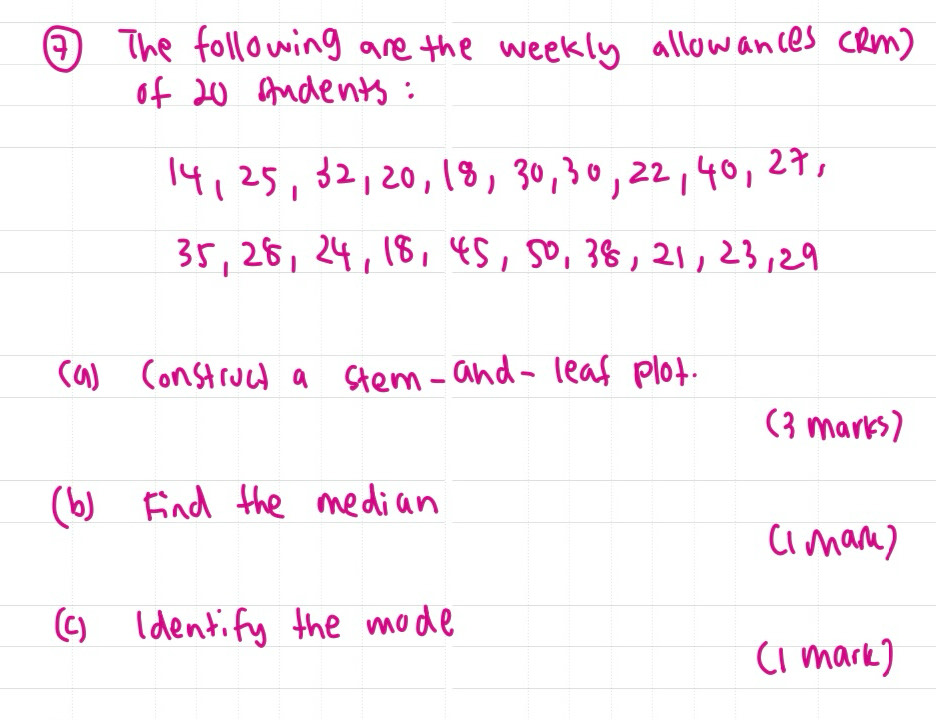 ⑦ The following are the weekly allowances (RM)
of 20 students :
14, 25, 32, 20, 18, 30, 30, 22, 40, 27,
35, 28, 24, 18, 45, 50, 38, 21, 23, 29
(a) Construct a stem-and-leaf plot.
(3 marks)
(b) Find the median
(1 mark)
(c) Identify the mode
(1 mark)